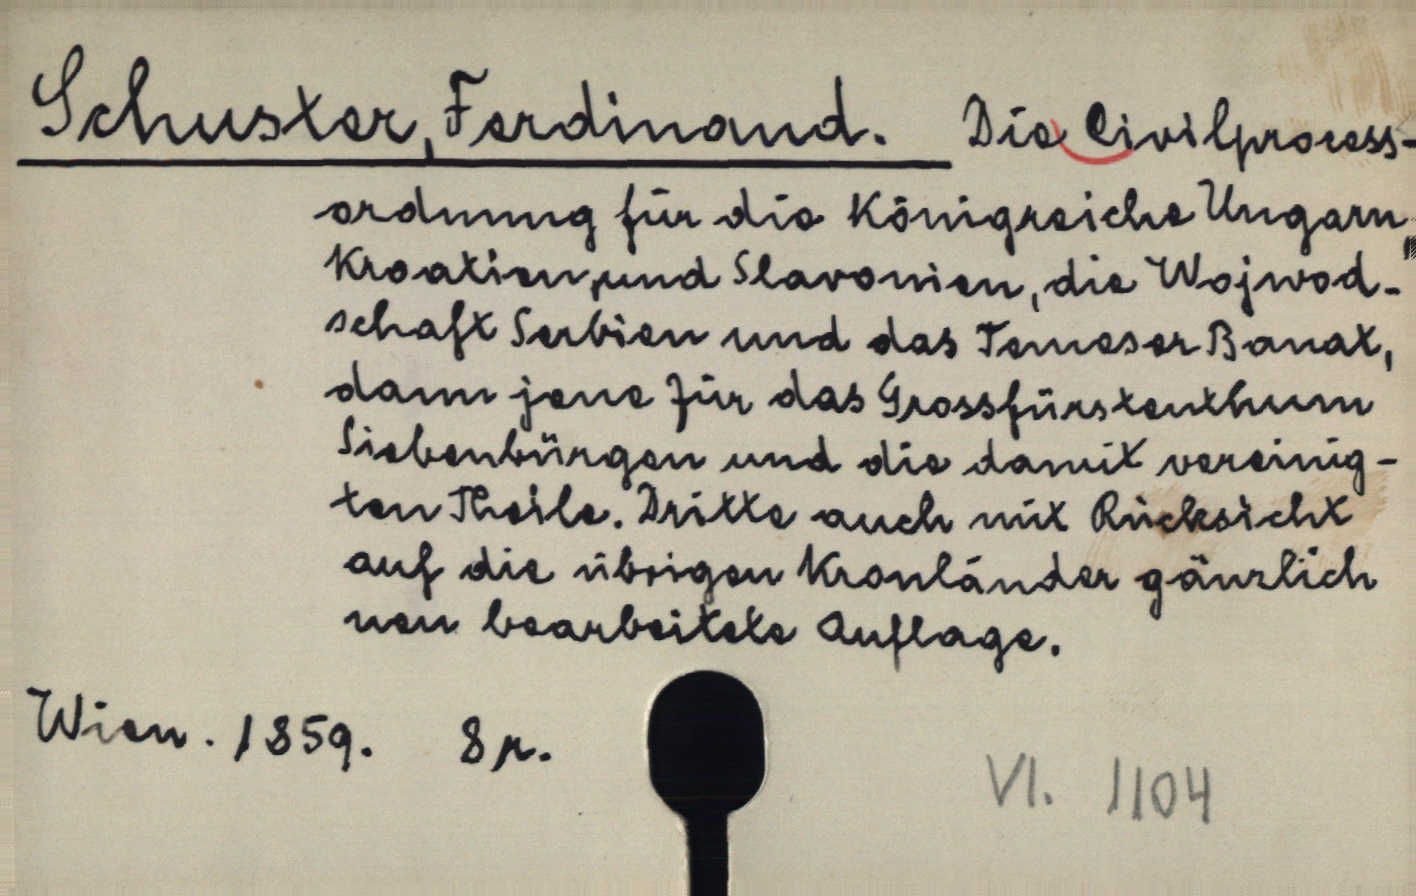 Schuster, Ferdinand. Die Civilprocess-
ordnung für die Königreiche Ungarn,
Kroatien, und Slavonien, die Wojwod-
schaft Serbien und das Temeser Banat,
dann jene für das Grossfürstenthum
Siebenbürgen und die damit vereinig-
ten Theile. Dritte auch mit Rücksicht
auf die übrigen Kronländer gänzlich
neu bearbeitete Auflage.
Wien. 1859. 8 r.
VI. 1104